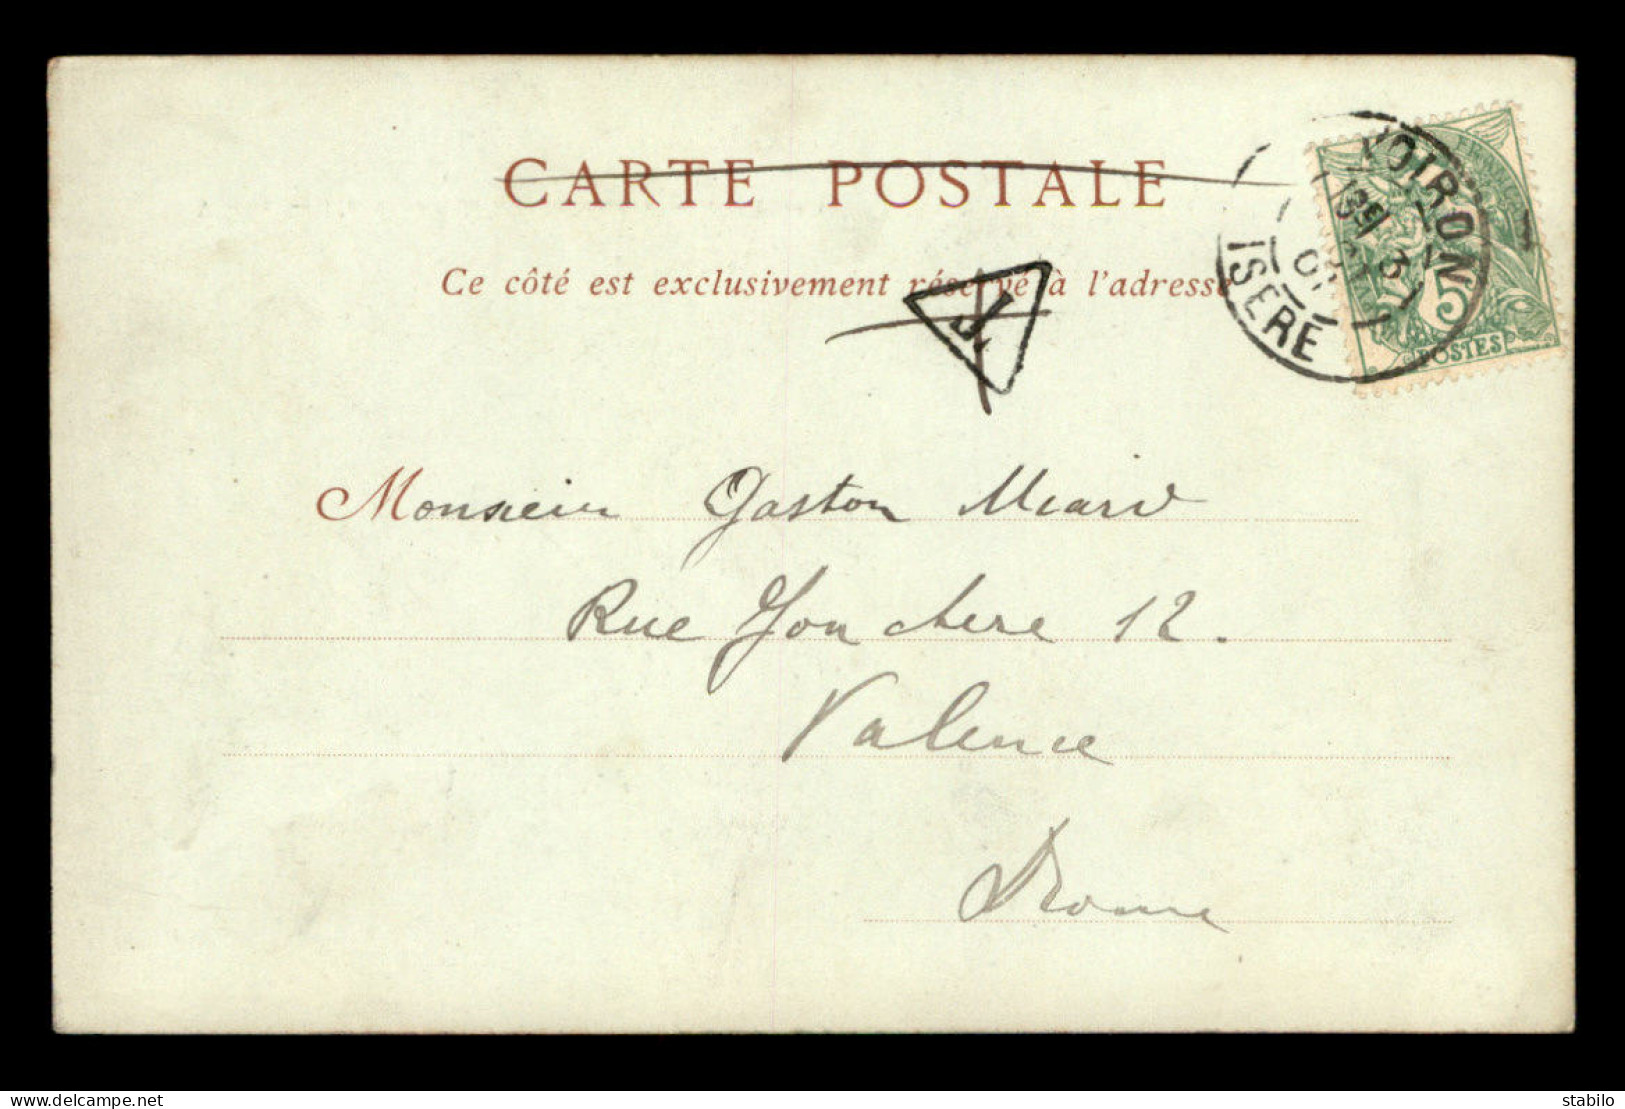 CARTE POSTALE
Ce côté est exclusivement réservé à l'adresse
VOIRON
ISÈRE
5
POSTES
Monsieur Gaston Miard
Rue Jonchere 12.
Valence
Drome
delcampe.net
stabilo